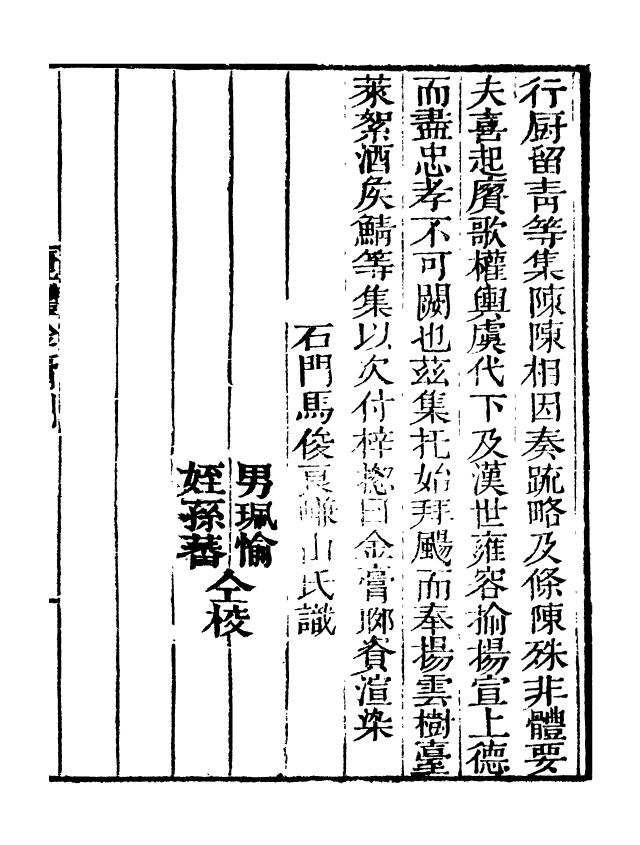 行厨留青等集陳陳相因奏疏略及條陳殊非體要
夫喜起賡歌權輿虞代下及漢世雍容揄揚宣上德
而盡忠孝不可闕也茲集托始拜颺而奉揚雲樹臺
萊絮酒矦鯖等集以欠付梓揔目金膏郷賁渲染
石門馬俊襄嵰山氏識
男珮愉
姪孫蕃
仝校